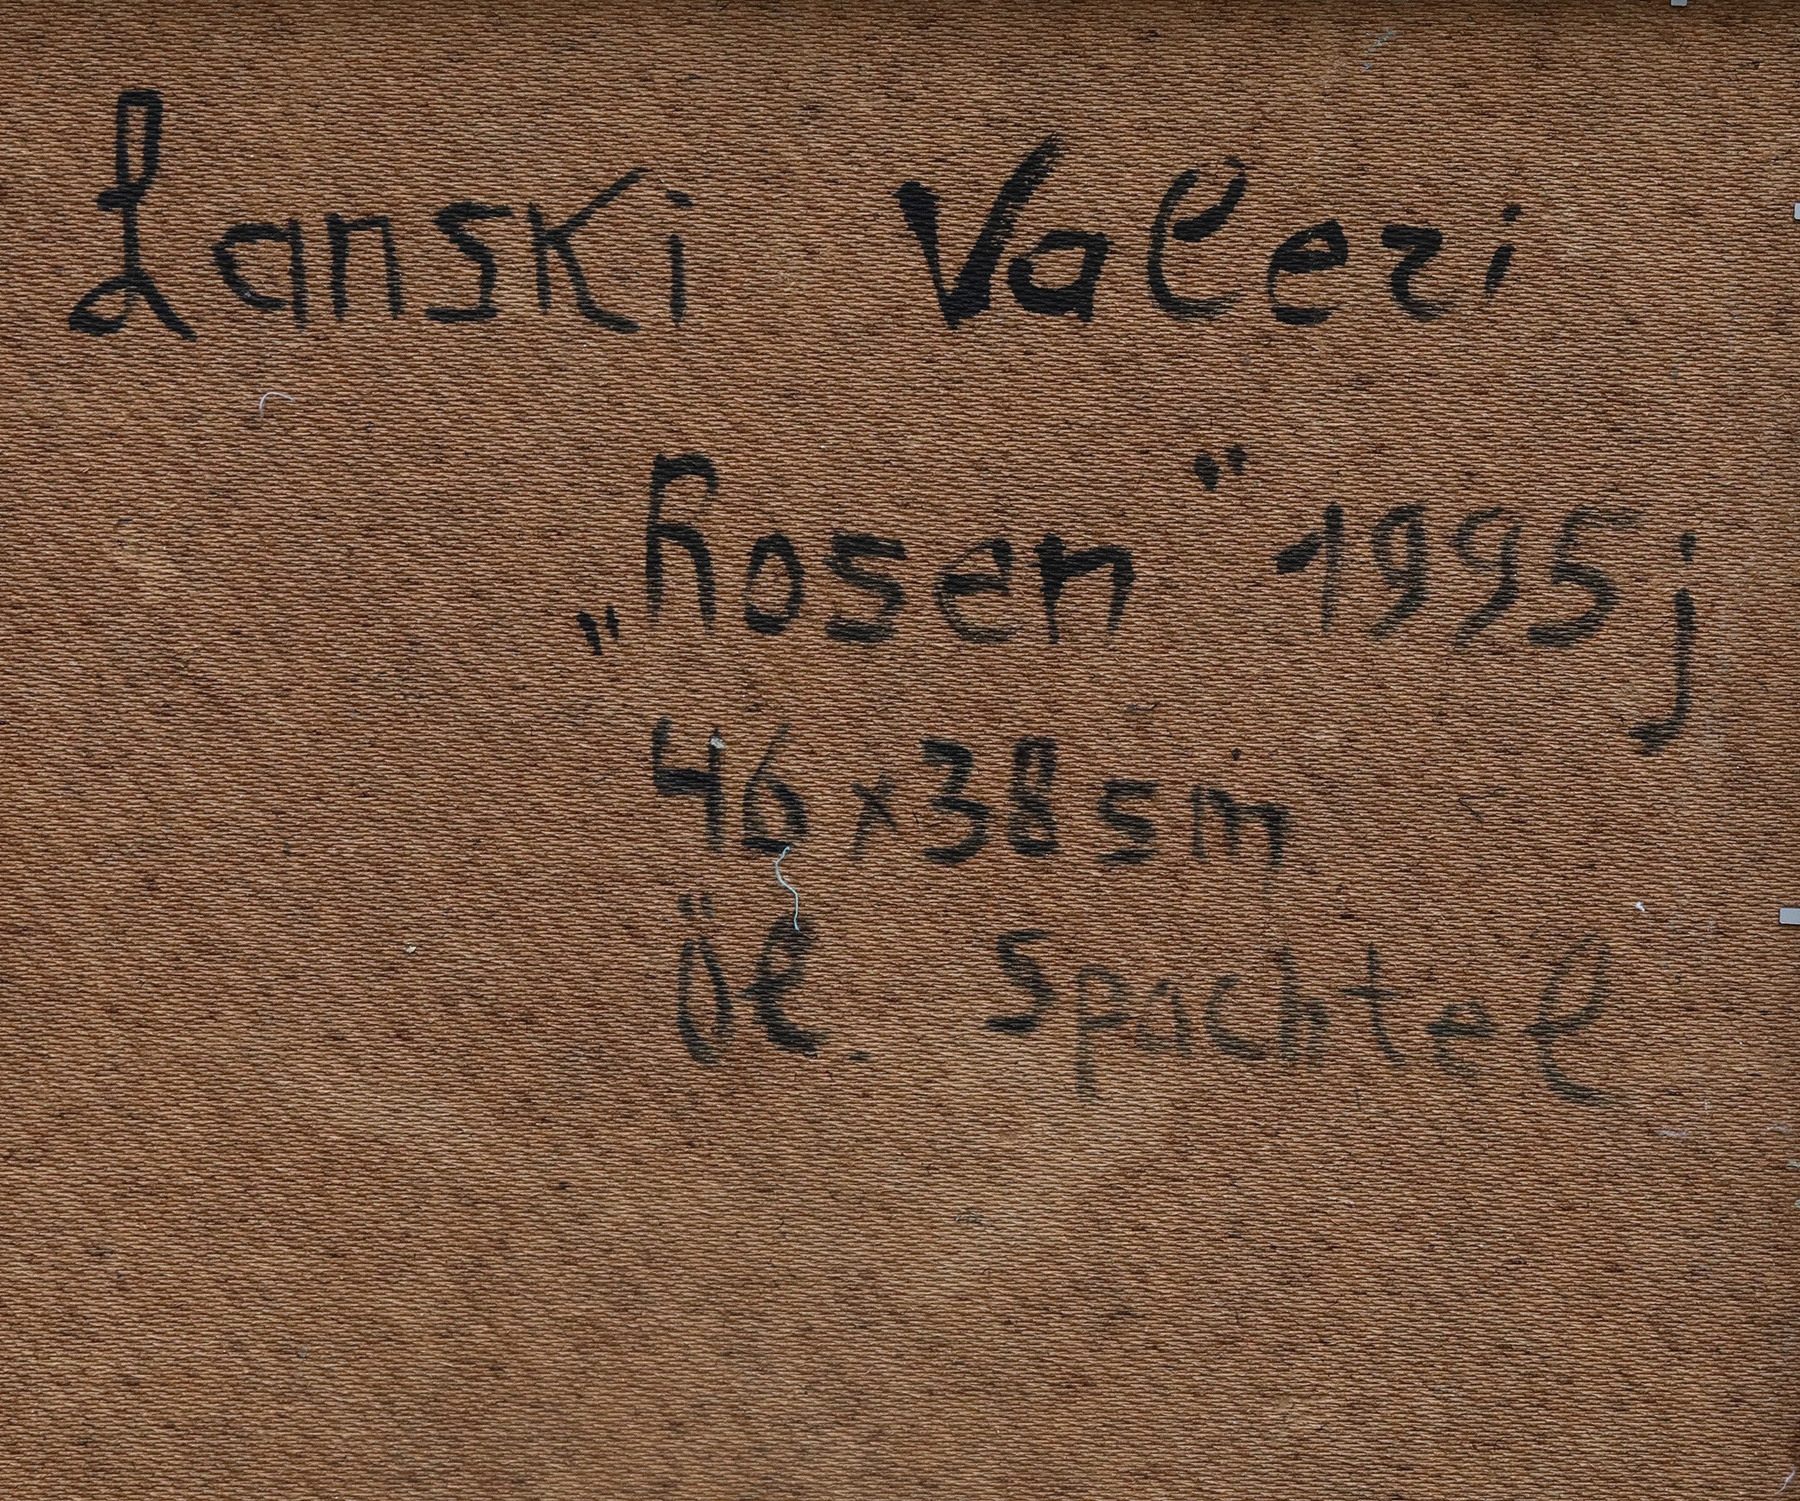 Lanski Valeri
„Rosen" 1995 j
46 x 38 sm
Öl. Spachtel